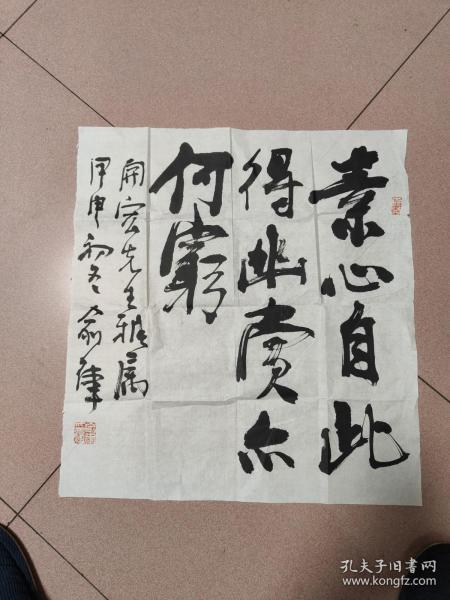 素心自此
得幽赏尔
何穷
開宏先生雅属
甲申初冬 俞建華
孔夫子旧书网
www.kongfz.com